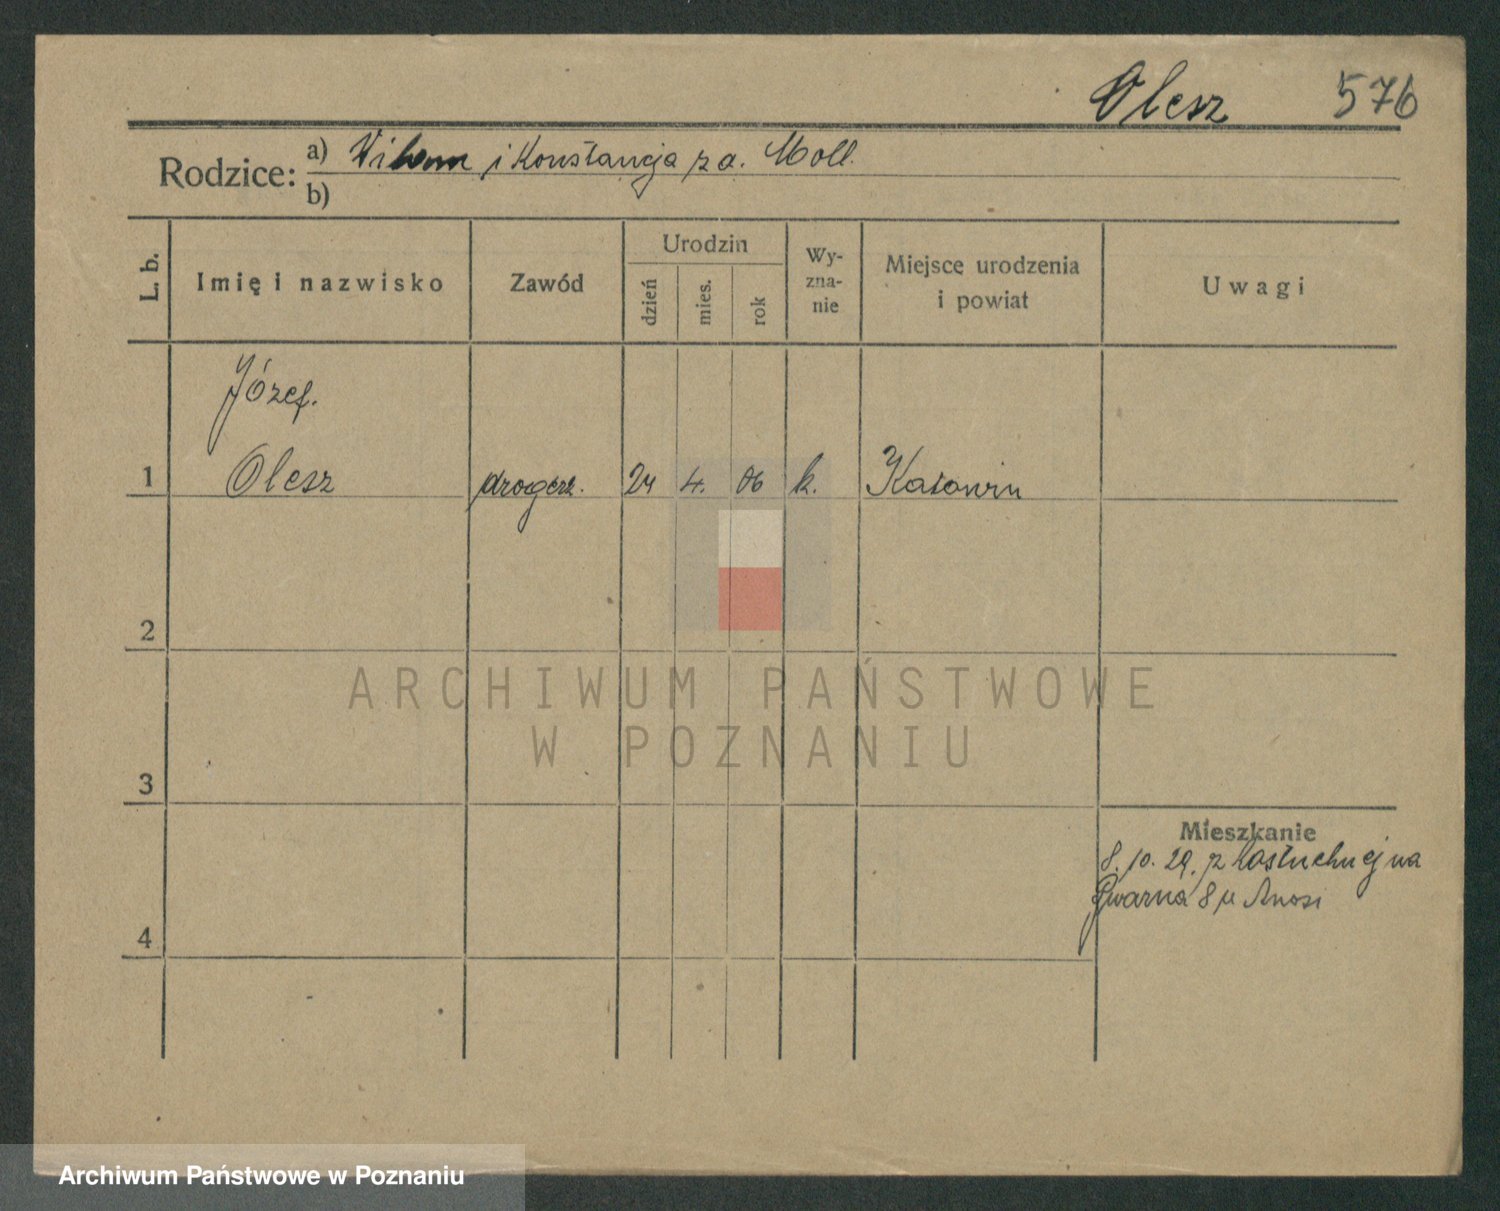 Olesz 576
Rodzice: a) i Konstancja z d. Moll.
b)
L. b. Imię i nazwisko Zawód Urodzin dzień mies. rok Wy-zna-nie Miejsce urodzenia i powiat Uwagi
Józef.
1 Olesz drogerz. 24 4. 06 k.
2
3
4
Mieszkanie
8. 10. 29. z na
Gwarna 8
ARCHIWUM PAŃSTWOWE
W POZNANIU
Archiwum Państwowe w Poznaniu